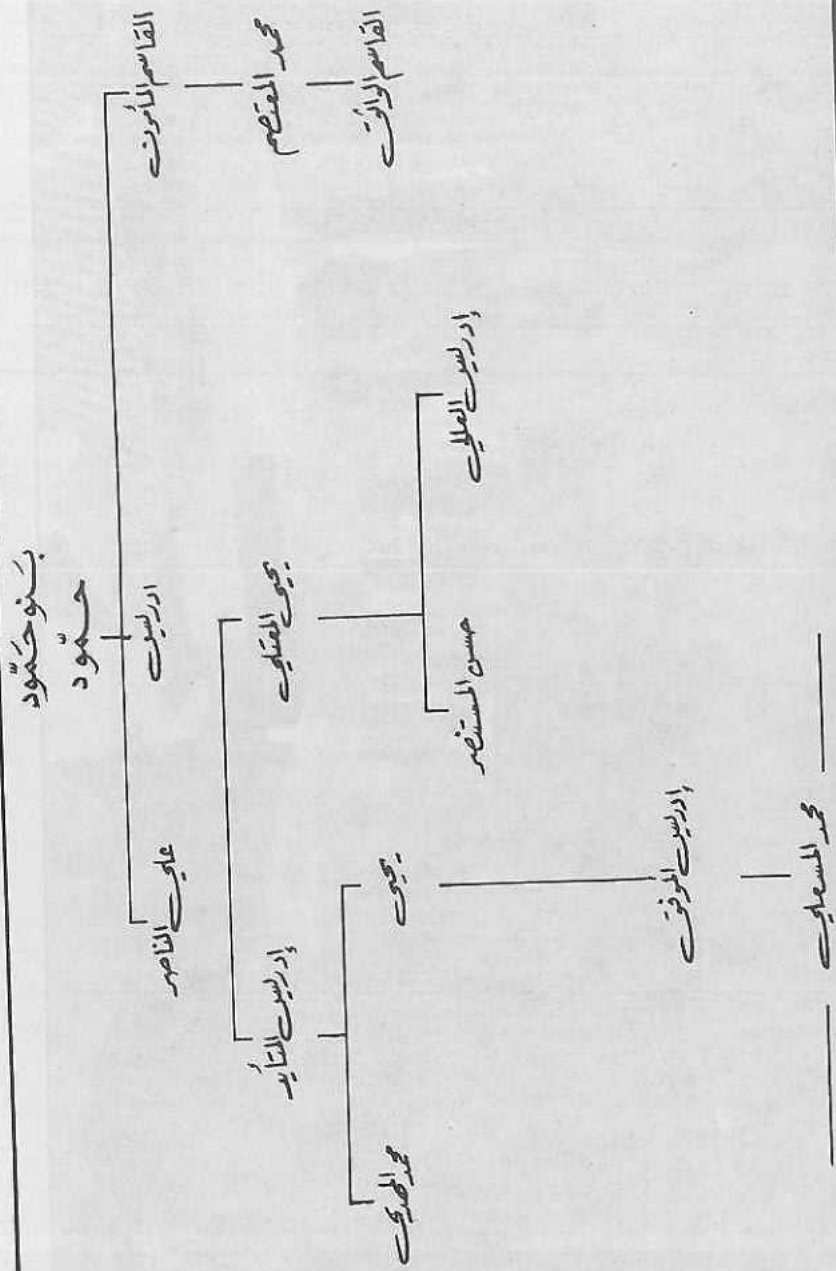 بَنو حَمّود
حمّود
القاسم المأمون
ادريس
علي الناصر
محمد المعتصم
القاسم الواثق
يحيى المعتلي
إدريس المتأيد
إدريس العالي
حسن المستنصر
يحيى
محمد المهدي
إدريس الموفق
محمد المستعلي